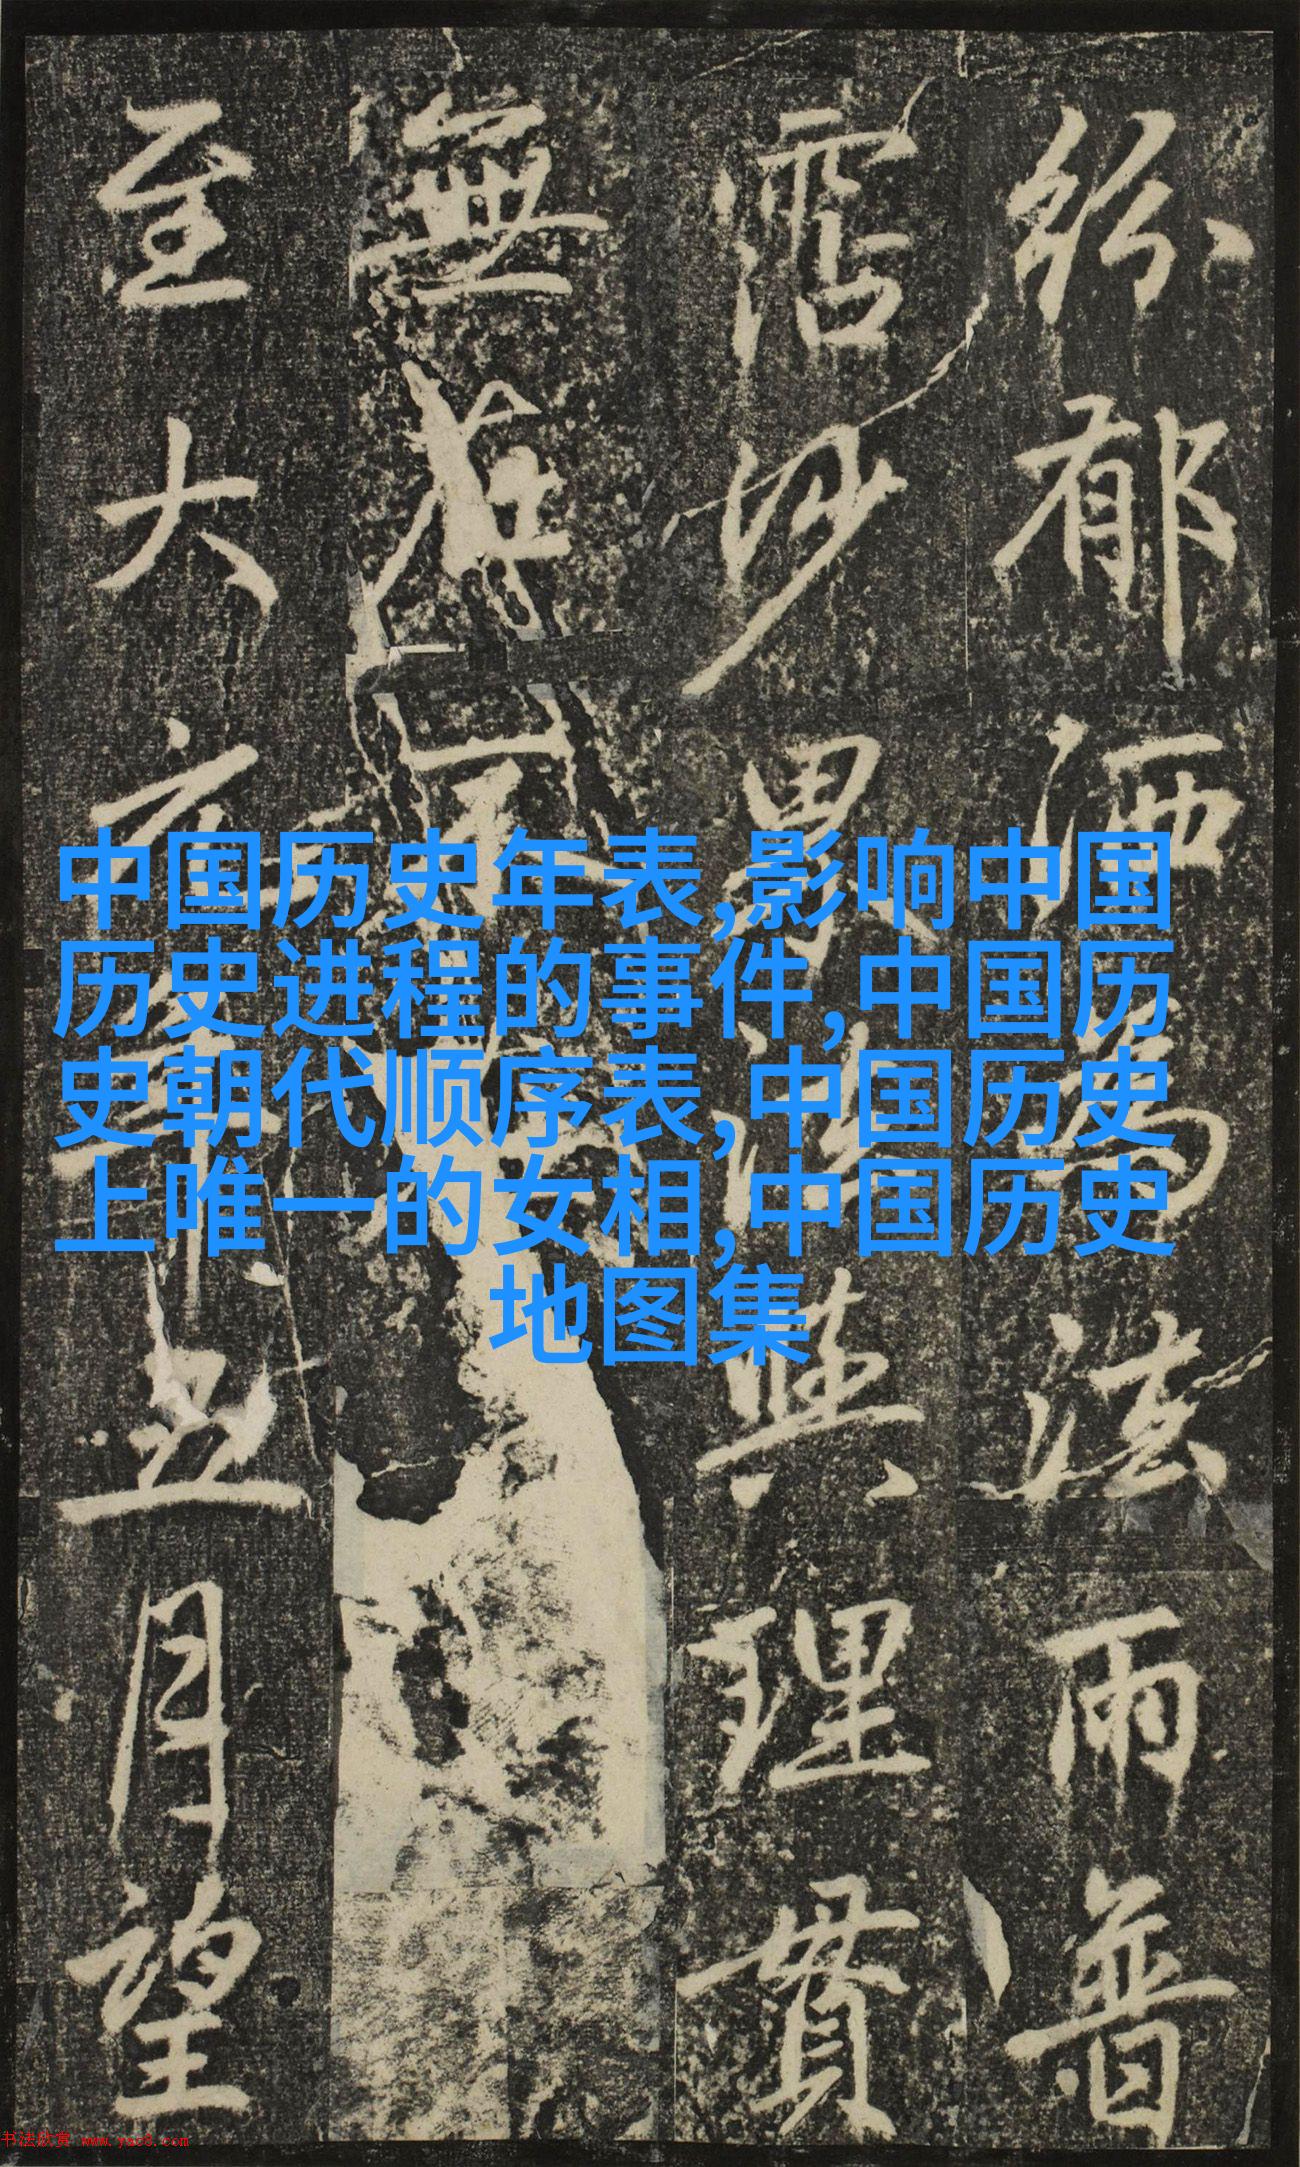 中国历史年表,影响中国
历史进程的事件,中国历
史朝代顺序表,中国历史
上唯一的女相,中国历史
地图集
紛郁洒為法雨普
霑妙果其理貫
無
至大年五月望
书法欣赏 www.yac8.com